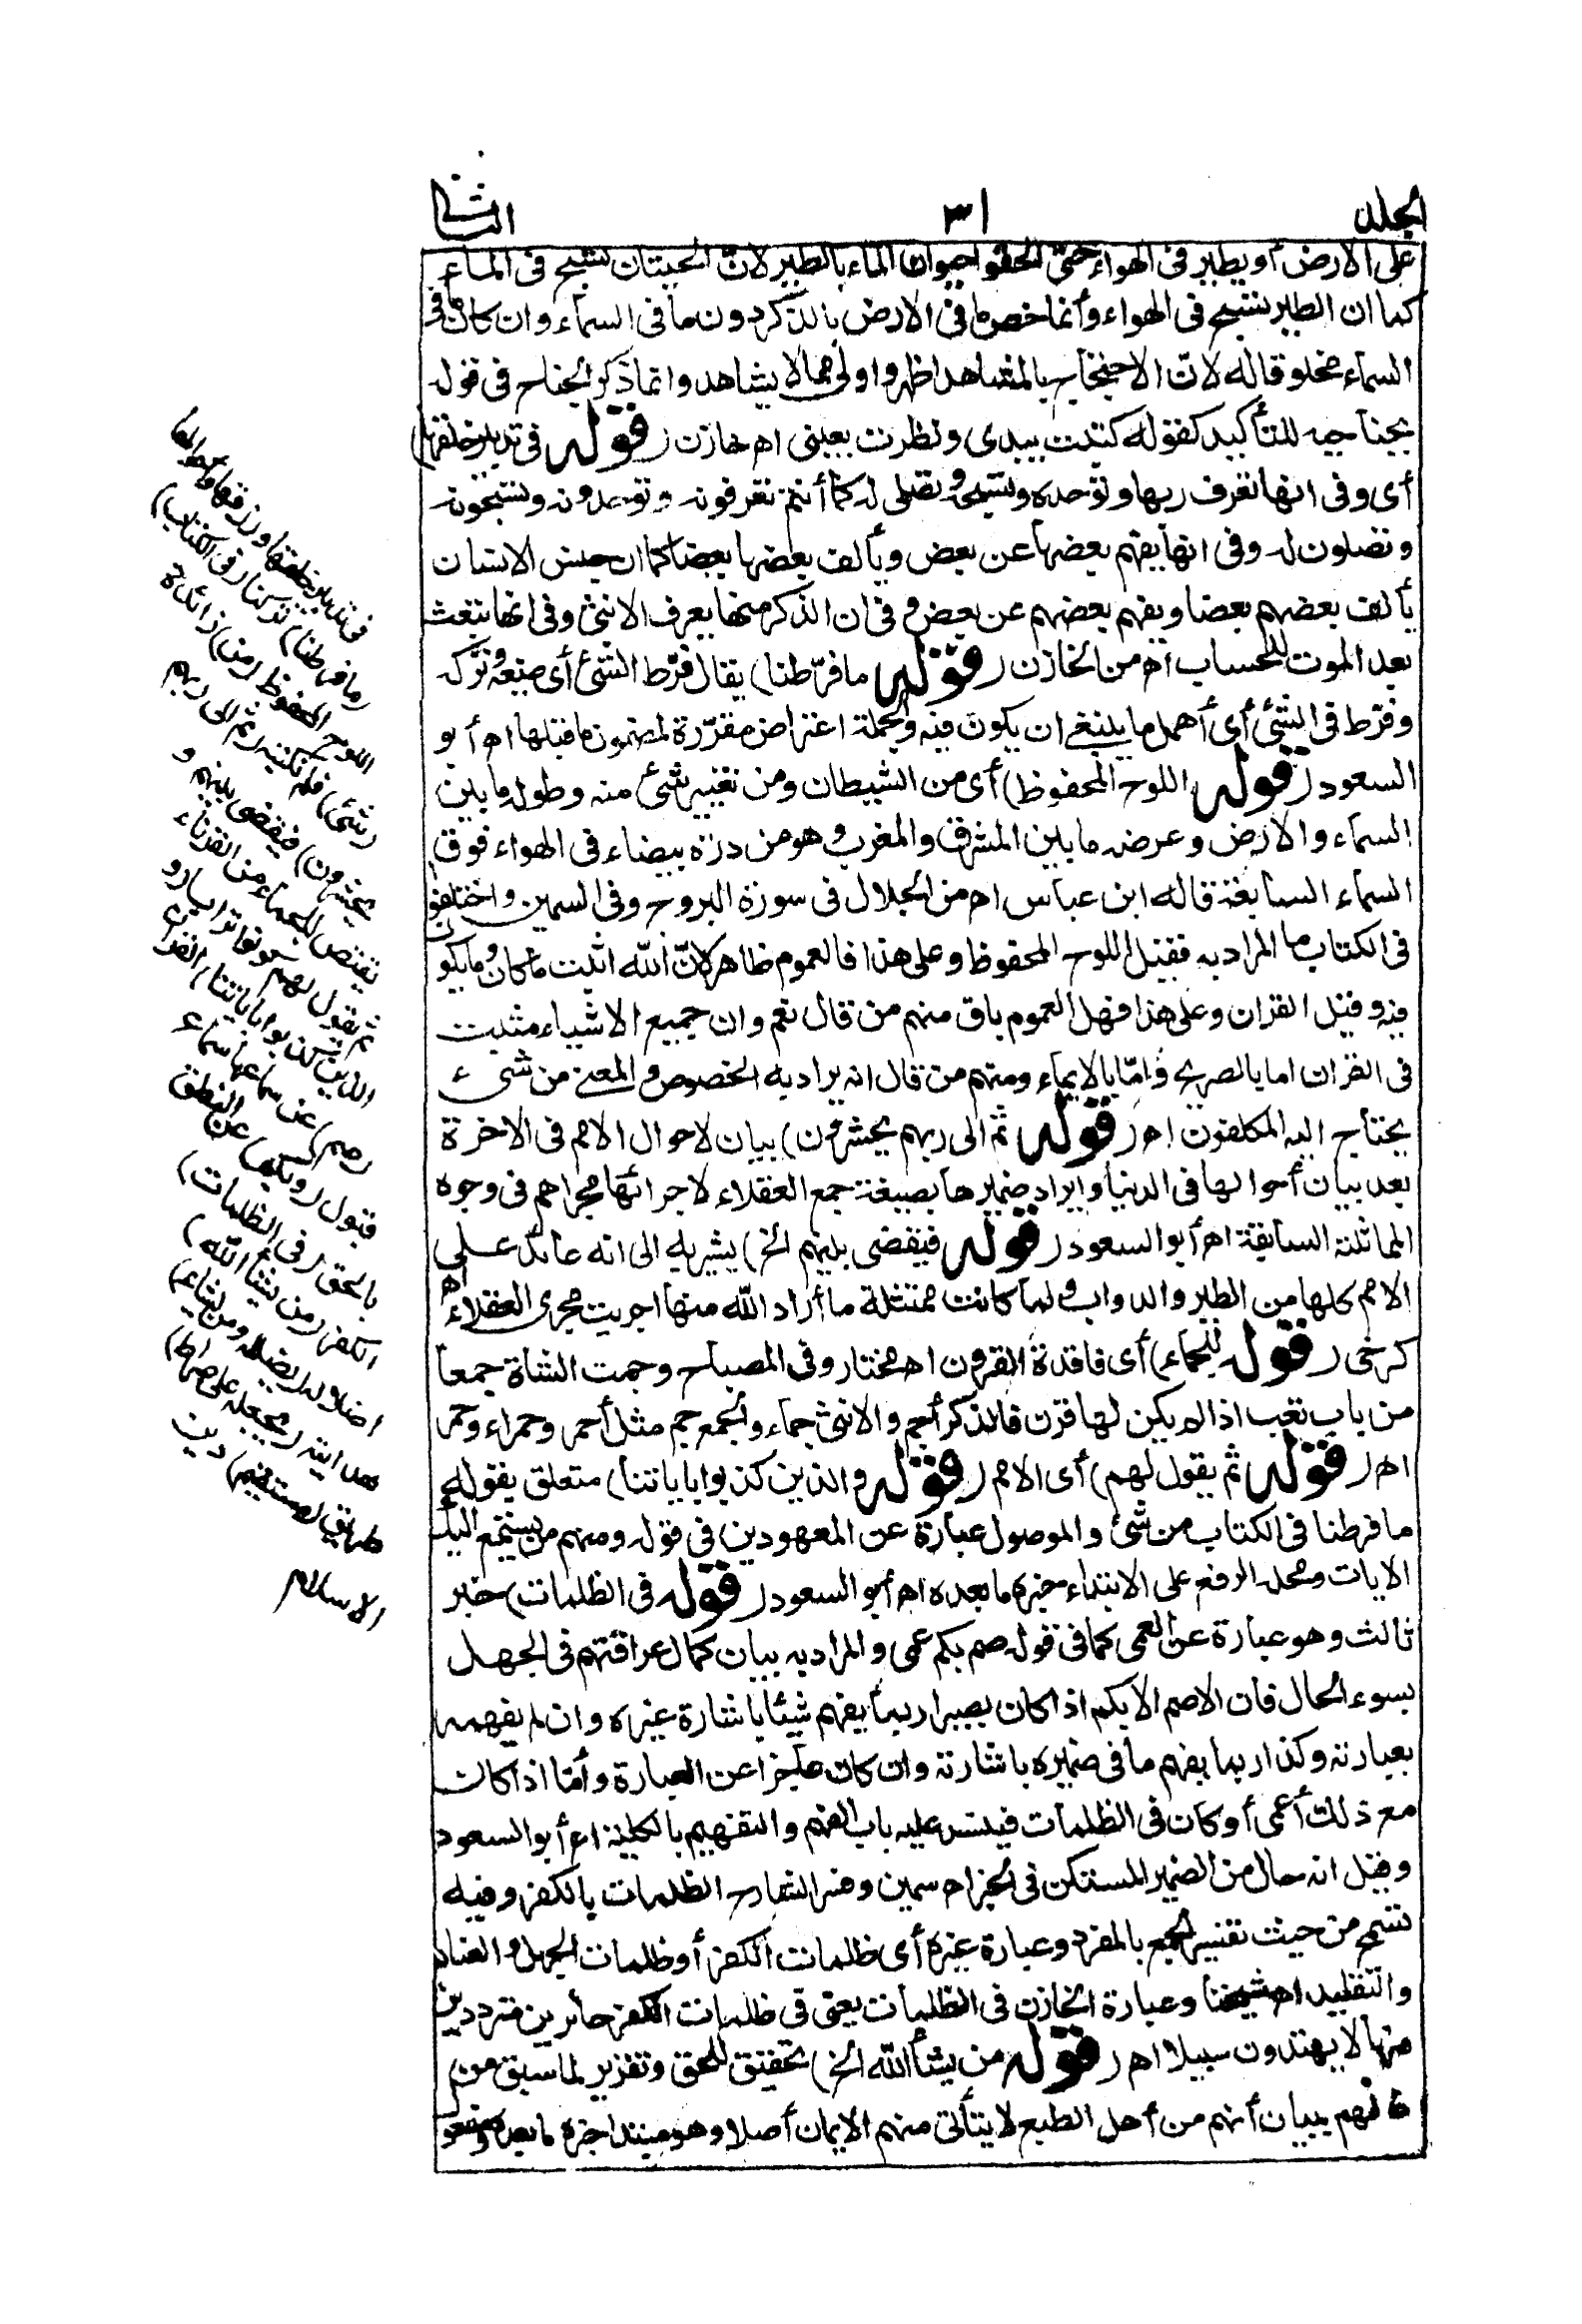 الجلد
٣١
الثانى
على الارض أو يطير فى الهواء حتى ألحقوا حيوان الماء بالطير لانّ الحيتان تسبح فى الماء
كما ان الطير تسبح فى الهواء وأنما خص ما فى الارض بالذكر دون ما فى السماء وان كان ما فى
السماء مخلوقا له لانّ الاحتجاج بالمشاهد اظهر واولى مما لا يشاهد وانما ذكر الجناح فى قوله
بجناحيه للتأكيد كقوله كتبت بيدى ونظرت بعينى اه خازن (قوله فى تدبير خلقها)
أى وفى انها تعرف ربها وتوحده وتسبحه وتصلى له كما أنتم تعرفونه وتوحدونه وتسبحونه
وتصلون له وفى انها يفهم بعضها عن بعض ويألف بعضها بعضا كما ان جنس الانسان
يألف بعضهم بعضا ويفهم بعضهم عن بعض وفى ان الذكر منها يعرف الانثى وفى انها تبعث
بعد الموت للحساب اه من الخازن (قوله ما فرّطنا) يقال فرّط الشئ أى ضيعه وتركه
وفرّط فى الشئ أى أهمل ما ينبغى ان يكون فيه والجملة اعتراض مقرّرة لمضمون ما قبلها اه أبو
السعود (قوله اللوح المحفوظ) أى من الشيطان ومن تغيير شئ منه وطوله ما بين
السماء والارض وعرضه ما بين المشرق والمغرب وهو من درة بيضاء فى الهواء فوق
السماء السابعة قاله ابن عباس اه من الجلال فى سورة البروج وفى السمين واختلفوا
فى الكتاب ما المراد به فقيل اللوح المحفوظ وعلى هذا فالعموم ظاهر لانّ الله اثبت ما كان وما يكون
فيه وقيل القران وعلى هذا فهل العموم باق منهم من قال نعم وان جميع الاشياء مثبت
فى القران اما بالصريح وامّا بالايماء ومنهم من قال انه يراد به الخصوص والمعنى من شىء
يحتاج اليه المكلفون اه (قوله ثم الى ربهم يحشرون) بيان لاحوال الامم فى الاخرة
بعد بيان أحوالها فى الدنيا وايراد ضميرها بصيغة جمع العقلاء لاجرائها مجراهم فى وجوه
المماثلة السابقة اه أبو السعود (قوله فيقضى بينهم الخ) يشير به الى انه عائد على
الامم كلها من الطير والدواب ولما كانت ممتثلة ما أراد الله منها اجريت مجرى العقلاء اه
كرخى (قوله للجماء) أى فاقدة القرون اه مختار وفى المصباح وجمت الشاة جمعا
من باب تعب اذا لم يكن لها قرن فالذكر أجم والانثى جماء والجمع جم مثل أحمر وحمراء وحمر
اه (قوله ثم يقول لهم) أى الامم (قوله والذين كذبوا باياتنا) متعلق بقوله
ما فرطنا فى الكتاب من شئ والموصول عبارة عن المعهودين فى قوله ومنهم من يستمع اليك
الايات ومحله الرفع على الابتداء خبره ما بعده اه أبو السعود (قوله فى الظلمات) خبر
ثالث وهو عبارة عن العمى كما فى قوله صم بكم عمى والمراد به بيان كمال عراقتهم فى الجهل
بسوء الحال فان الاصم الابكم اذا كان بصيرا ربما يفهم شيئا باشارة غيره وان لم يفهمه
بعبارته وكذا ربما يفهم ما فى ضميره باشارته وان كان عاجزا عن العبارة وأما اذا كان
مع ذلك أعمى أو كان فى الظلمات فينسد عليه باب الفهم والتفهيم بالكلية اه أبو السعود
وقيل انه حال من الضمير المستكن فى الخبر اه سمين وفسر الشارح الظلمات بالكفر وفيه
تسمح من حيث تفسير الجمع بالمفرد وعبارة غيره أى ظلمات الكفر أو ظلمات الجهل والعناد
والتقليد اه شيخنا وعبارة الخازن فى الظلمات يعنى فى ظلمات الكفر حائرين مترددين
فيها لا يهتدون سبيلا اه (قوله من يشأ الله الخ) تحقيق للحق وتقرير لما سبق من
حالهم ببيان أنهم من أهل الطبع لا يتأتى منهم الايمان أصلا وهو مبتدا خبره ما بعده ومفعول
فى تدبير خلقها ورزقها وأحوالها
(ما فرطنا) تركنا (فى الكتاب)
اللوح المحفوظ (من) زائدة
(شئ) فلم نكتبه (ثم الى ربهم
يحشرون) فيقضى بينهم و
يقتص للجماء من القرناء
ثم يقول لهم كونوا ترابا (و
الذين كذبوا باياتنا) القران
(صم) عن سماعها سماع
قبول (وبكم) عن النطق
بالحق (فى الظلمات)
الكفر (من يشأ الله)
اضلاله (يضلله ومن يشأ)
هدايته (يجعله على صراط)
طريق (مستقيم) دين
الاسلام